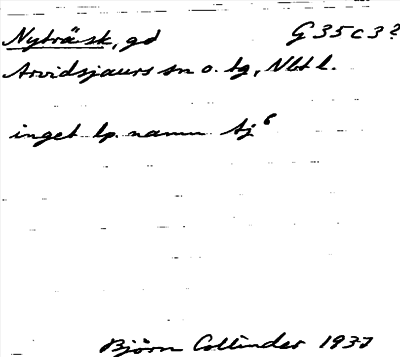 Nyträsk, gd G 35 c 3?
Arvidsjaurs sn o. tg, Nbt l.
inget lp. namn Aj⁶
Björn Collinder 1937